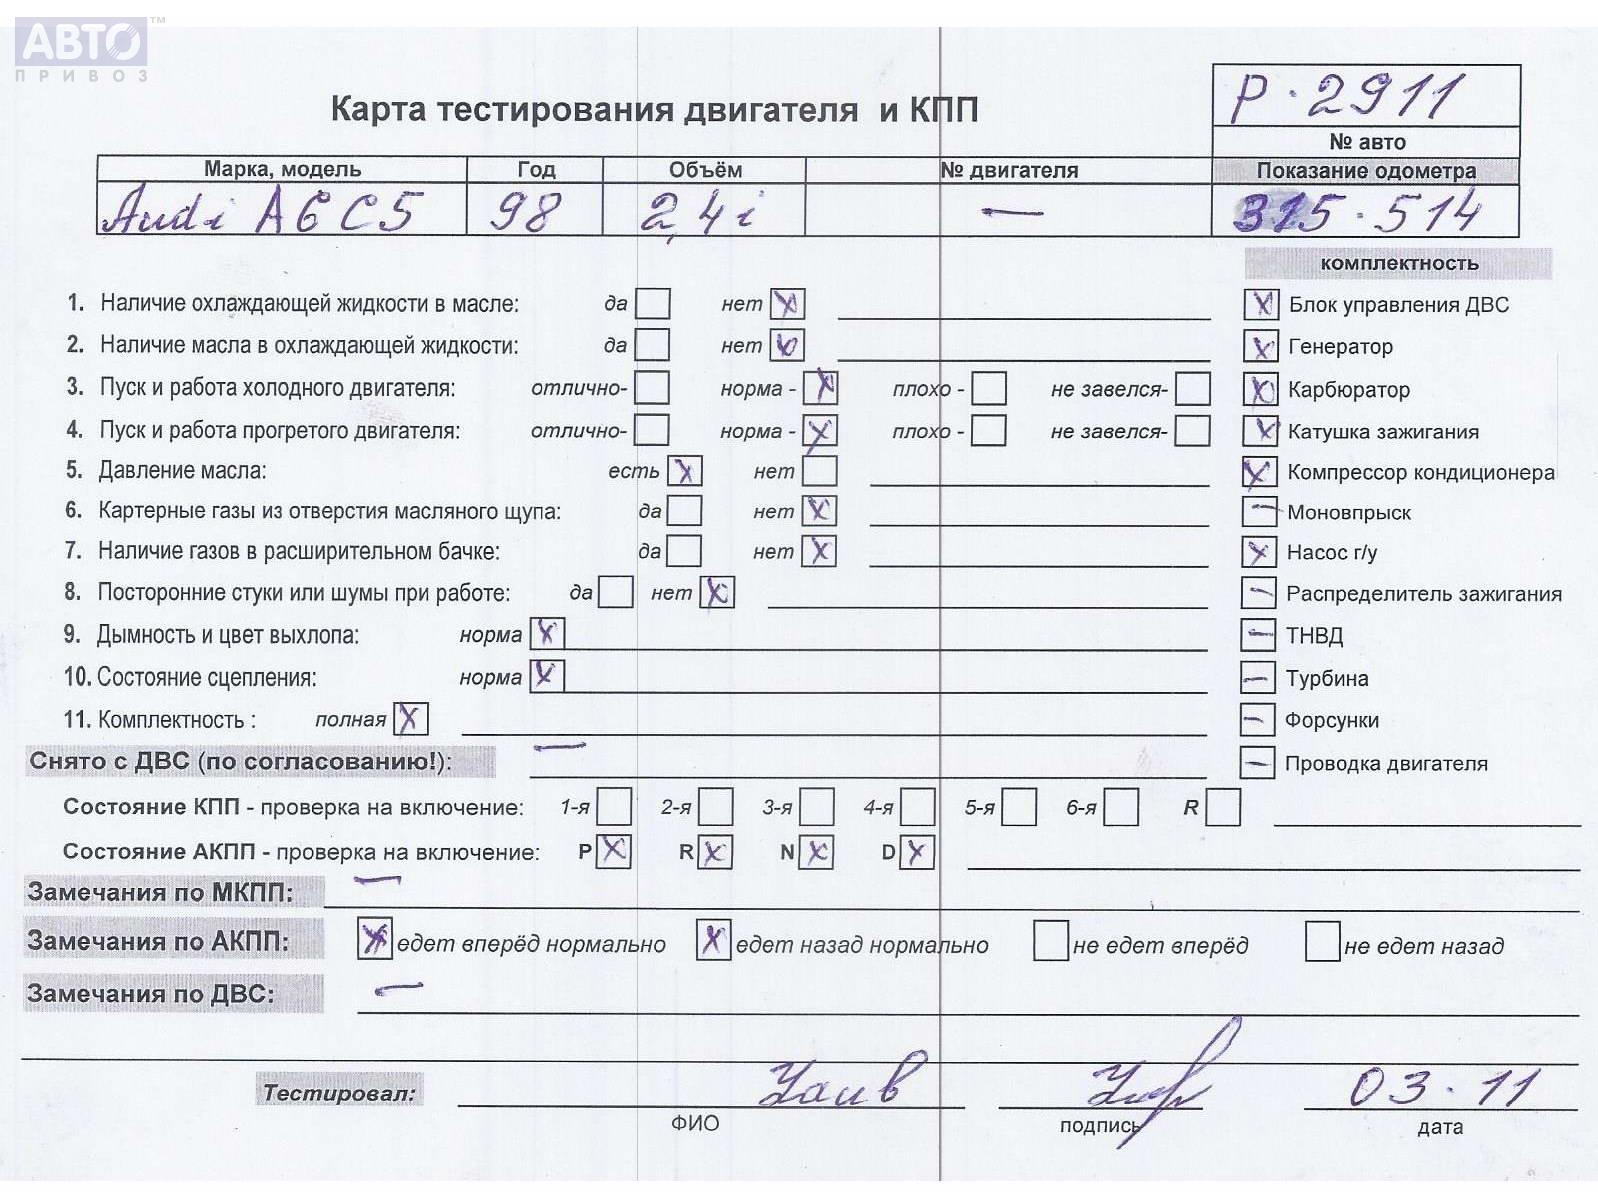 АВТО™
ПРИВОЗ
Р·2911
Карта тестирования двигателя и КПП
№ авто
Марка, модель Год Объём № двигателя Показание одометра
Audi A6 C5 98 2,4i — 315·514
комплектность
1. Наличие охлаждающей жидкости в масле: да нет X X Блок управления ДВС
2. Наличие масла в охлаждающей жидкости: да нет X X Генератор
3. Пуск и работа холодного двигателя: отлично- норма - X плохо - не завелся- X Карбюратор
4. Пуск и работа прогретого двигателя: отлично- норма - X плохо - не завелся- X Катушка зажигания
5. Давление масла: есть X нет X Компрессор кондиционера
6. Картерные газы из отверстия масляного щупа: да нет X — Моновпрыск
7. Наличие газов в расширительном бачке: да нет X X Насос г/у
8. Посторонние стуки или шумы при работе: да нет X — Распределитель зажигания
9. Дымность и цвет выхлопа: норма X — ТНВД
10. Состояние сцепления: норма X — Турбина
11. Комплектность : полная X — Форсунки
Снято с ДВС (по согласованию!): — — Проводка двигателя
Состояние КПП - проверка на включение: 1-я 2-я 3-я 4-я 5-я 6-я R
Состояние АКПП - проверка на включение: P X R X N X D X
Замечания по МКПП: —
Замечания по АКПП: X едет вперёд нормально X едет назад нормально не едет вперёд не едет назад
Замечания по ДВС: —
Тестировал: 03·11
ФИО подпись дата